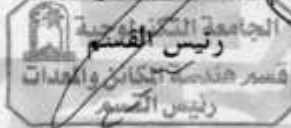 الجامعة التكنولوجية
رئيس القسم
قسم هندسة المكائن والمعدات
رئيس القسم